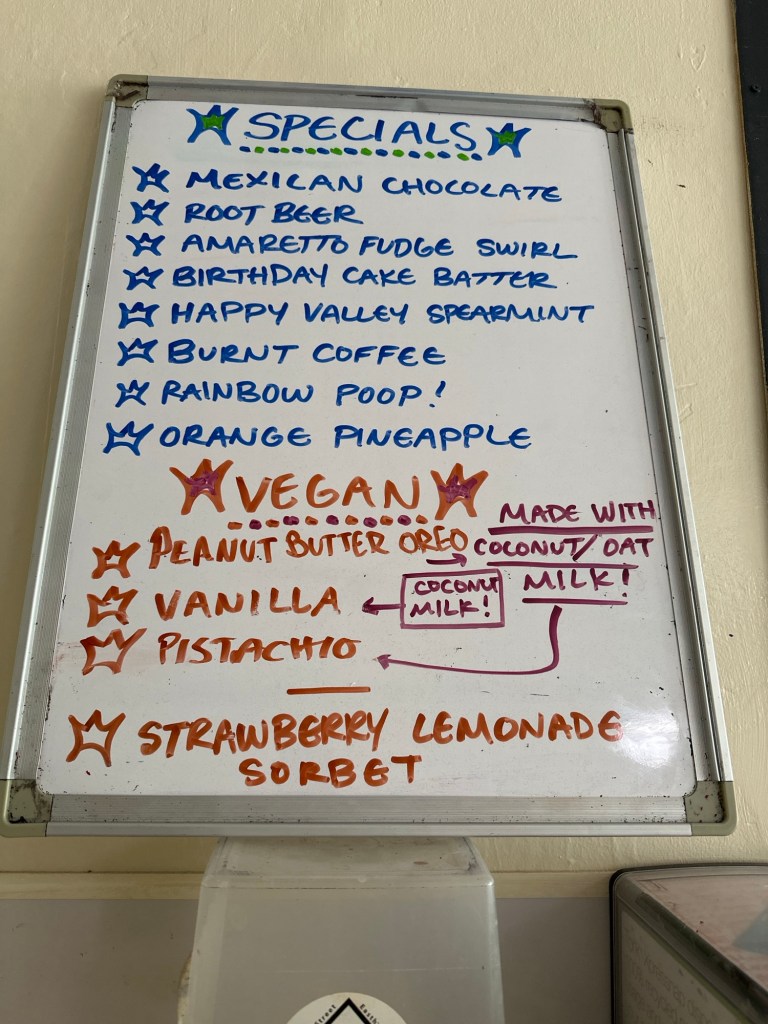 SPECIALS
MEXICAN CHOCOLATE
ROOT BEER
AMARETTO FUDGE SWIRL
BIRTHDAY CAKE BATTER
HAPPY VALLEY SPEARMINT
BURNT COFFEE
RAINBOW POOP!
ORANGE PINEAPPLE
VEGAN
PEANUT BUTTER OREO
MADE WITH
COCONUT/OAT
MILK!
VANILLA
COCONUT
MILK!
PISTACHIO
STRAWBERRY LEMONADE
SORBET
Street